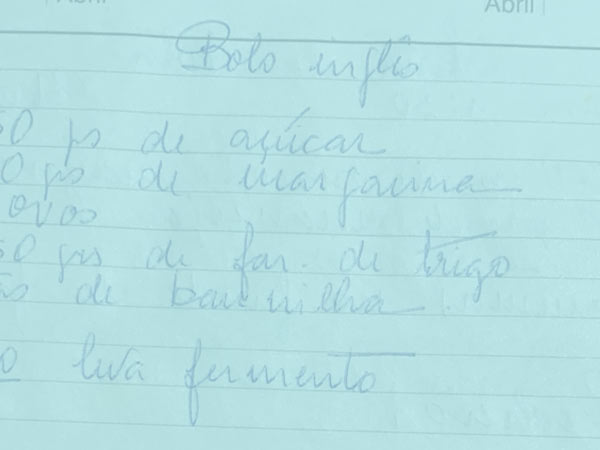 Abril
Abril
Bolo inglês
50 grs de açúcar
0 grs de margarina
ovos
50 grs de far. de trigo
de baunilha
leva fermento